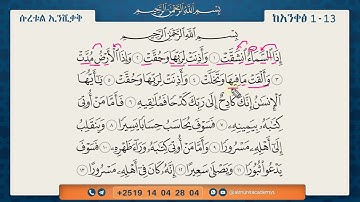 ሱረቱል ኢንሺቃቅ
بِسْمِ اللَّهِ الرَّحْمَٰنِ الرَّحِيمِ
ከአንቀፅ 1 - 13
بِسْمِ اللَّهِ الرَّحْمَٰنِ الرَّحِيمِ
إِذَا ٱلسَّمَآءُ ٱنشَقَّتْ ١ وَأَذِنَتْ لِرَبِّهَا وَحُقَّتْ ٢ وَإِذَا ٱلْأَرْضُ مُدَّتْ
٣ وَأَلْقَتْ مَا فِيهَا وَتَخَلَّتْ ٤ وَأَذِنَتْ لِرَبِّهَا وَحُقَّتْ ٥ يَٰٓأَيُّهَا
ٱلْإِنسَٰنُ إِنَّكَ كَادِحٌ إِلَىٰ رَبِّكَ كَدْحًا فَمُلَٰقِيهِ ٦ فَأَمَّا مَنْ أُوتِىَ
كِتَٰبَهُۥ بِيَمِينِهِۦ ٧ فَسَوْفَ يُحَاسَبُ حِسَابًا يَسِيرًا ٨ وَيَنقَلِبُ
إِلَىٰٓ أَهْلِهِۦ مَسْرُورًا ٩ وَأَمَّا مَنْ أُوتِىَ كِتَٰبَهُۥ وَرَآءَ ظَهْرِهِۦ ١٠ فَسَوْفَ
يَدْعُوا۟ ثُبُورًا ١١ وَيَصْلَىٰ سَعِيرًا ١٢ إِنَّهُۥ كَانَ فِىٓ أَهْلِهِۦ مَسْرُورًا ١٣
+2519 14 04 28 04